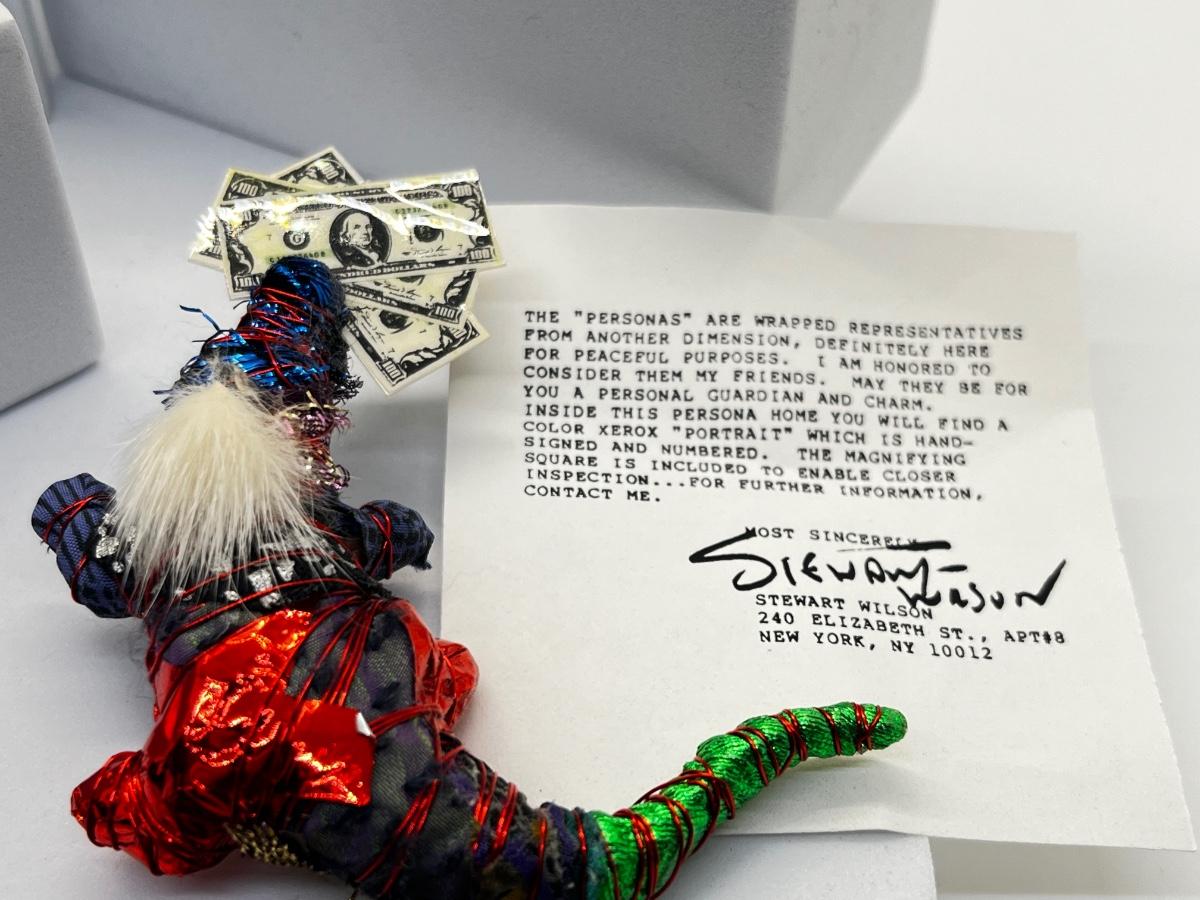 100
100
100
G
HUNDRED DOLLARS
DOLLARS
100
100
THE "PERSONAS" ARE WRAPPED REPRESENTATIVES
FROM ANOTHER DIMENSION, DEFINITELY HERE
FOR PEACEFUL PURPOSES. I AM HONORED TO
CONSIDER THEM MY FRIENDS. MAY THEY BE FOR
YOU A PERSONAL GUARDIAN AND CHARM.
INSIDE THIS PERSONA HOME YOU WILL FIND A
COLOR XEROX "PORTRAIT" WHICH IS HAND-
SIGNED AND NUMBERED. THE MAGNIFYING
SQUARE IS INCLUDED TO ENABLE CLOSER
INSPECTION...FOR FURTHER INFORMATION,
CONTACT ME.
MOST SINCERELY
STEWART WILSON
STEWART WILSON
240 ELIZABETH ST., APT#8
NEW YORK, NY 10012